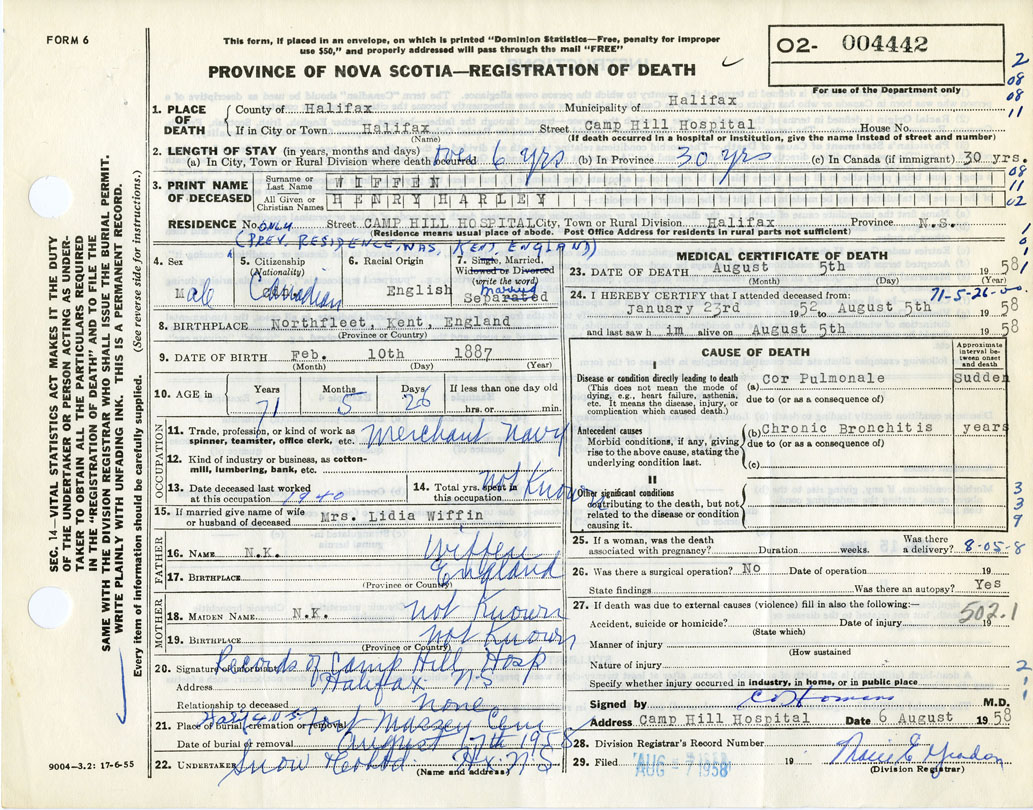 FORM 6
This form, if placed in an envelope, on which is printed "Dominion Statistics—Free, penalty for improper
use $50," and properly addressed will pass through the mail "FREE"
PROVINCE OF NOVA SCOTIA—REGISTRATION OF DEATH
02- 004442
For use of the Department only
1. PLACE OF DEATH
County of Halifax Municipality of Halifax
If in City or Town Halifax Street Camp Hill Hospital House No.
(Name) (If death occurred in a hospital or institution, give the name instead of street and number)
2. LENGTH OF STAY (in years, months and days)
(a) In City, Town or Rural Division where death occurred 6 yrs (b) In Province 30 yrs (c) In Canada (if immigrant) 30 yrs.
3. PRINT NAME OF DECEASED
Surname or Last Name WIFFEN
All Given or Christian Names HENRY HARLEY
RESIDENCE No. ONLY Street CAMP HILL HOSPITAL City, Town or Rural Division Halifax Province N.S.
(Residence means usual place of abode. Post Office Address for residents in rural parts not sufficient)
(PREV. RESIDENCE WAS KENT, ENGLAND)
4. Sex Male
5. Citizenship (Nationality) Canadian
6. Racial Origin English
7. Single, Married, Widowed or Divorced (write the word) Married Separated
8. BIRTHPLACE Northfleet, Kent, England
(Province or Country)
9. DATE OF BIRTH Feb. 10th 1887
(Month) (Day) (Year)
10. AGE in Years 71 Months 5 Days 26 If less than one day old hrs. or min.
OCCUPATION
11. Trade, profession, or kind of work as spinner, teamster, office clerk, etc. Merchant Navy
12. Kind of industry or business, as cotton-mill, lumbering, bank, etc.
13. Date deceased last worked at this occupation 1940
14. Total yrs. spent in this occupation not Known
15. If married give name of wife or husband of deceased Mrs. Lidia Wiffin
FATHER
16. NAME N.K. Wiffen
17. BIRTHPLACE England
(Province or Country)
MOTHER
18. MAIDEN NAME N.K. not Known
19. BIRTHPLACE not Known
(Province or Country)
20. Signature of informant Records of Camp Hill Hosp
Address Halifax N.S
Relationship to deceased none
21. Place of burial, cremation or removal Fort Massey Cem
Date of burial or removal August 7th 1958
22. UNDERTAKER Snow Hx. N.S
(Name and address)
MEDICAL CERTIFICATE OF DEATH
23. DATE OF DEATH August 5th 1958
(Month) (Day) (Year)
71-5-26
24. I HEREBY CERTIFY that I attended deceased from:
January 23rd 1952 to August 5th 1958
and last saw him alive on August 5th 1958
CAUSE OF DEATH
Approximate interval between onset and death
I
Disease or condition directly leading to death (a) Cor Pulmonale Sudden
(This does not mean the mode of dying, e.g., heart failure, asthenia, etc. It means the disease, injury, or complication which caused death.)
due to (or as a consequence of)
Antecedent causes (b) Chronic Bronchitis years
Morbid conditions, if any, giving rise to the above cause, stating the underlying condition last.
due to (or as a consequence of)
(c)
II
Other significant conditions
contributing to the death, but not related to the disease or condition causing it.
25. If a woman, was the death associated with pregnancy? Duration weeks. Was there a delivery? 8-05-8
26. Was there a surgical operation? No Date of operation 19
State findings Was there an autopsy? Yes
27. If death was due to external causes (violence) fill in also the following:—
Accident, suicide or homicide? Date of injury 19
(State which)
502.1
Manner of injury
(How sustained
Nature of injury
Specify whether injury occurred in industry, in home, or in public place
Signed by M.D.
Address Camp Hill Hospital Date 6 August 1958
28. Division Registrar's Record Number
29. Filed AUG 1958 19
(Division Registrar)
SEC. 14—VITAL STATISTICS ACT MAKES IT THE DUTY
OF THE UNDERTAKER OR PERSON ACTING AS UNDER-
TAKER TO OBTAIN ALL THE PARTICULARS REQUIRED
IN THE "REGISTRATION OF DEATH" AND TO FILE THE
SAME WITH THE DIVISION REGISTRAR WHO SHALL ISSUE THE BURIAL PERMIT.
WRITE PLAINLY WITH UNFADING INK. THIS IS A PERMANENT RECORD.
Every item of information should be carefully supplied. (See reverse side for instructions.)
9004-3.2: 17-6-55
2
08
08
11
08
11
02
3
3
3
9
2